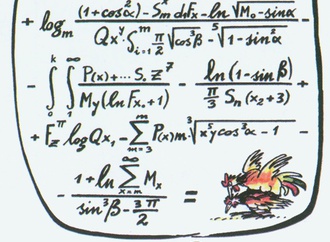 + log_m ((1+cosα) - S_m^x dnFx - ln √M₀ - sinα) / (Qx^y · S_{i=1}^m π/2 √cos³β - ⁵√1-sin²α)
- ∫₀^k ∫₁^∞ (P(x)+... S. Z⁷) / (My(ln Fx.+1)) - ln(1-sinβ) / (π/3 Sn(x₂+3)) +
+ F_z^π log Qx, - Σ_{m=3}^m P(x)m · ³√x⁵y cos³α - 1 -
- (1+ln Σ_{x=m}^∞ Mx) / (sin³β - 3π/2) =